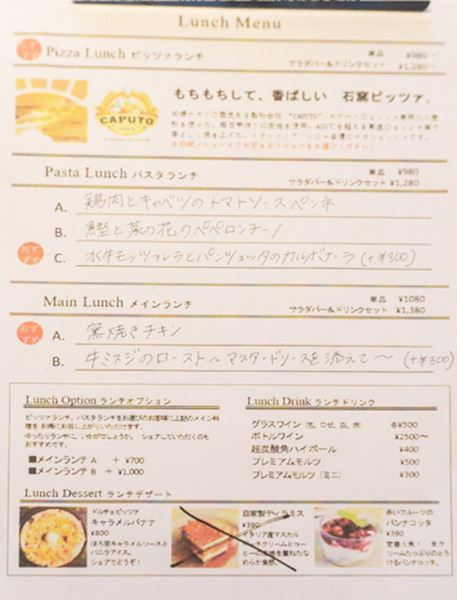 Lunch Menu
おすすめ
Pizza Lunch ピッツァランチ
単品 ¥980〜
サラダバー&ドリンクセット ¥1,280〜
もちもちして、香ばしい 石窯ピッツァ。
CAPUTO
Pasta Lunch パスタランチ
単品 ¥980
サラダバー&ドリンクセット ¥1,280
A. 鶏肉とキャベツのトマトソースペンネ
B. 鰹と菜の花のペペロンチーノ
おすすめ
C. 水牛モッツァレラとパンツェッタのカルボナーラ (+¥300)
Main Lunch メインランチ
単品 ¥1080
サラダバー&ドリンクセット ¥1,380
おすすめ
A. 窯焼きチキン
B. 牛ミスジのロースト〜マスタードソースを添えて〜 (+¥300)
Lunch Option ランチオプション
ピッツァランチ、パスタランチをお選びのお客様に上記のメイン料
理を お得にお召し上がりいただけます。
ゆったりランチに、いかがでしょうか。 シェアしていただくのも
おすすめです。
■メインランチ A + ¥700
■メインランチ B + ¥1,000
Lunch Drink ランチドリンク
グラスワイン (泡、ロゼ、白、赤) 各¥500
ボトルワイン ¥2500〜
超炭酸角ハイボール ¥400
プレミアムモルツ ¥500
プレミアムモルツ (ミニ) ¥300
Lunch Dessert ランチデザート
ドルチェピッツァ
キャラメルバナナ
¥800
ほろ苦キャラメルソースと
バニラアイス。
シェアでどうぞ!
自家製ティラミス
¥390
イタリア産マスカル
ポーネクリームとコー
ヒーの生地を重ねたな
めらか食感。
赤いフルーツの
パンナコッタ
¥390
定番人気! 生ク
リームたっぷりのとろ
けるパンナコッタ。